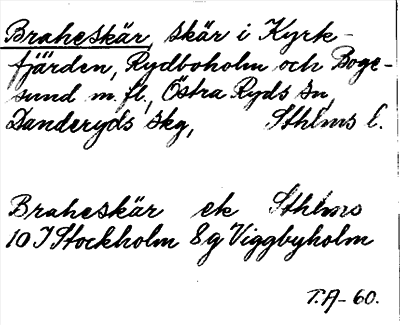 Braheskär, skär i Kyrk-
fjärden, Rydboholm och Boge-
sund m. fl., Östra Ryds sn,
Danderyds skg, Sthlms l.
Braheskär ek Sthlms
10 I Stockholm 8 g Viggbyholm
T.A-60.